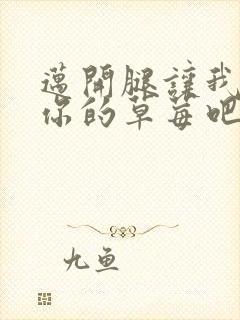 邁開腿讓我
你的草莓吧
九鱼